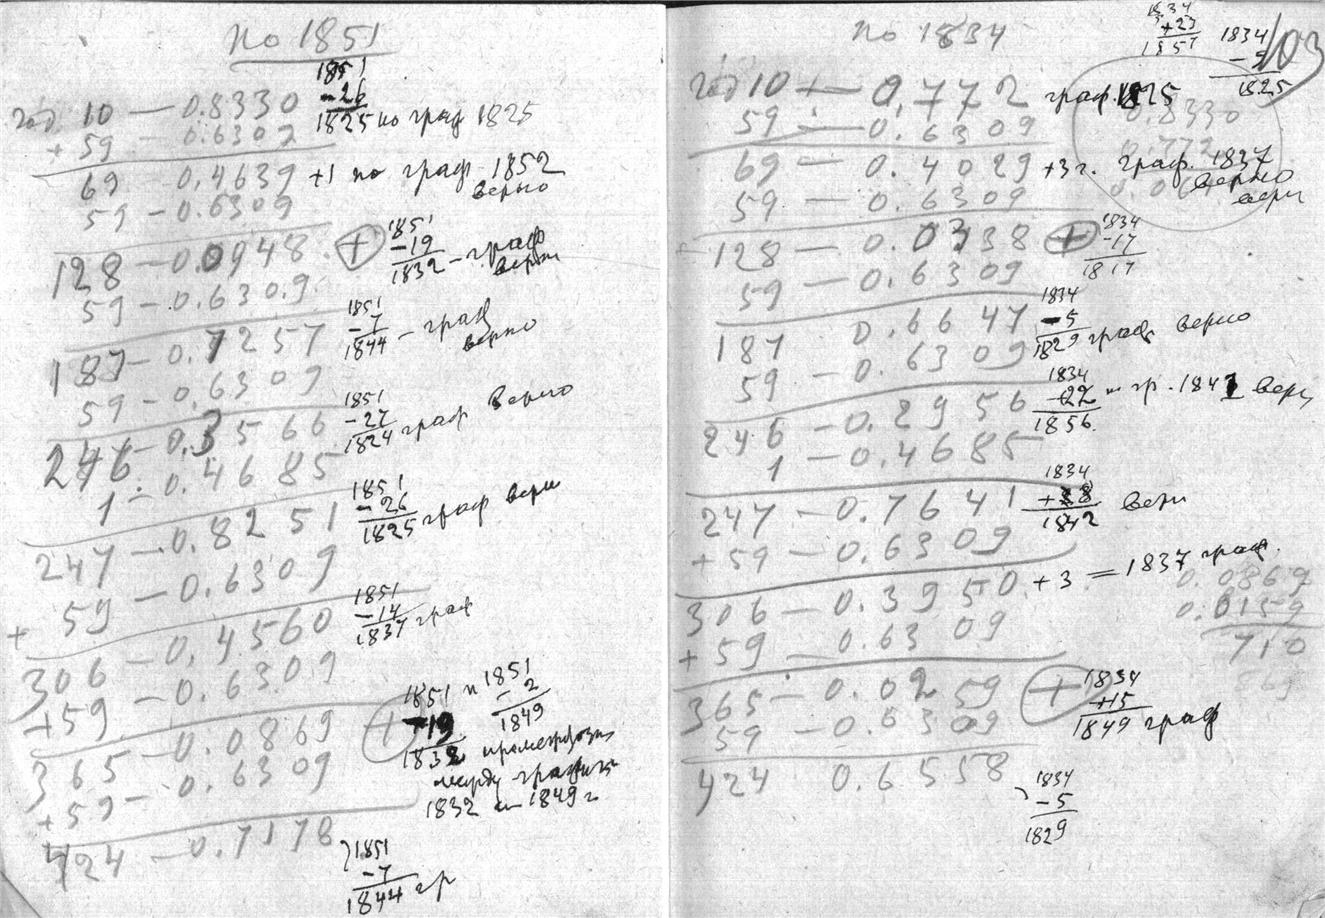 по 1851
1851
год 10 — 0.8330 -26
+ 59 — 0.6309 1825 по граф 1825
69 — 0.4639 +1 по граф. 1852
59 — 0.6309 верно
1851
128 — 0.0948. + -19
59 — 0.6309. 1832 — граф верн
1851
187 — 0.7257 -7
59 — 0.6309 1844 — граф верно
1851
246 — 0.3566 -27
1 — 0.4685 1824 граф верно
1851
247 — 0.8251 -26
59 — 0.6309 1825 граф верн
1851
+ 306 — 0.4560 -14
+59 — 0.6309 1837 граф
1851 и 1851
365 — 0.0869 + -19 - 2
+59 — 0.6309 1832 1849
между график
1832 и 1849 г
424 — 0.7178
1851
-7
1844 гр
по 1834
1834
+23
1857
1834
-9
1825
103
год 10 — 0,772 граф. 1825
59 — 0.6309
0.8330
0.772
69 — 0.4029 +3 г. граф. 1837
59 — 0.6309 верно
верн
1834
128 — 0.0338 + -17
59 — 0.6309 1817
1834
187 0.6647 -5
59 0.6309 1829 граф верно
1834
246 — 0.2956 -22 — гр. 1841 верн
1 — 0.4685 1856.
1834
247 — 0.7641 +88
+59 — 0.6309 1842 верн
306 — 0.3950. +3 = 1837 граф.
+59 — 0.6309
0.0869
0.0159
710
869
1834
365 — 0.0259 + +15
59 — 0.6309 1849 граф
424 0.6558
1834
-5
1829